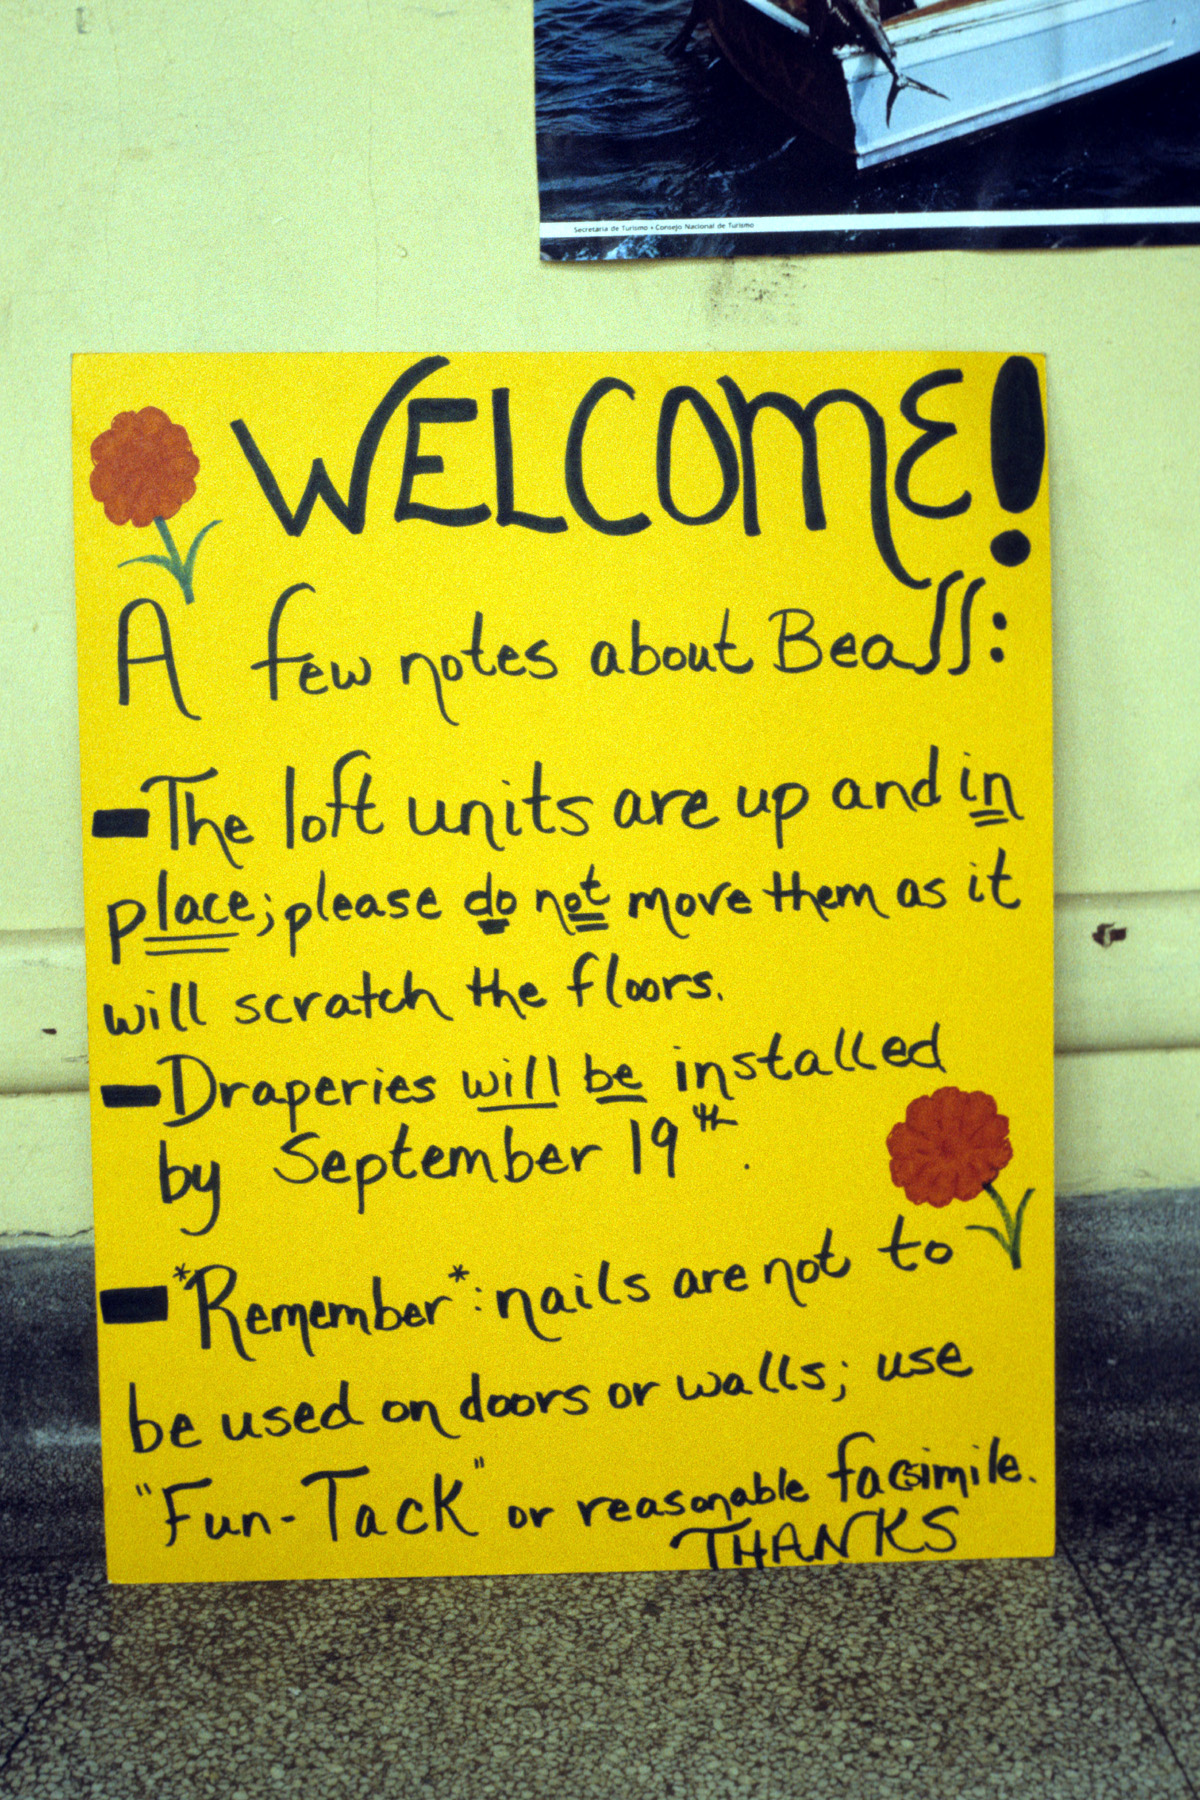 Secretaría de Turismo • Consejo Nacional de Turismo
WELCOME!
A few notes about Beass:
- The loft units are up and in
place; please do not move them as it
will scratch the floors.
- Draperies will be installed
by September 19th.
- *Remember*: nails are not to
be used on doors or walls; use
"Fun-Tack" or reasonable facsimile.
THANKS